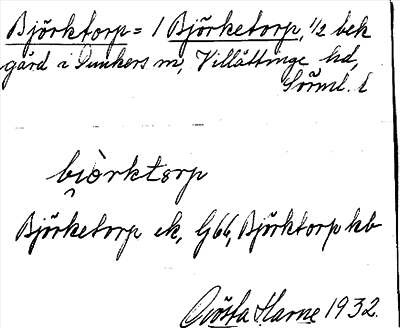 Björktorp = 1 Björketorp, 1/2 bek
gård i Dunkers sn, Villåttinge hd,
Sörml. l
bjòrktorp
Björketorp ek, G66, Björktorp kb
Gösta Harne 1932.